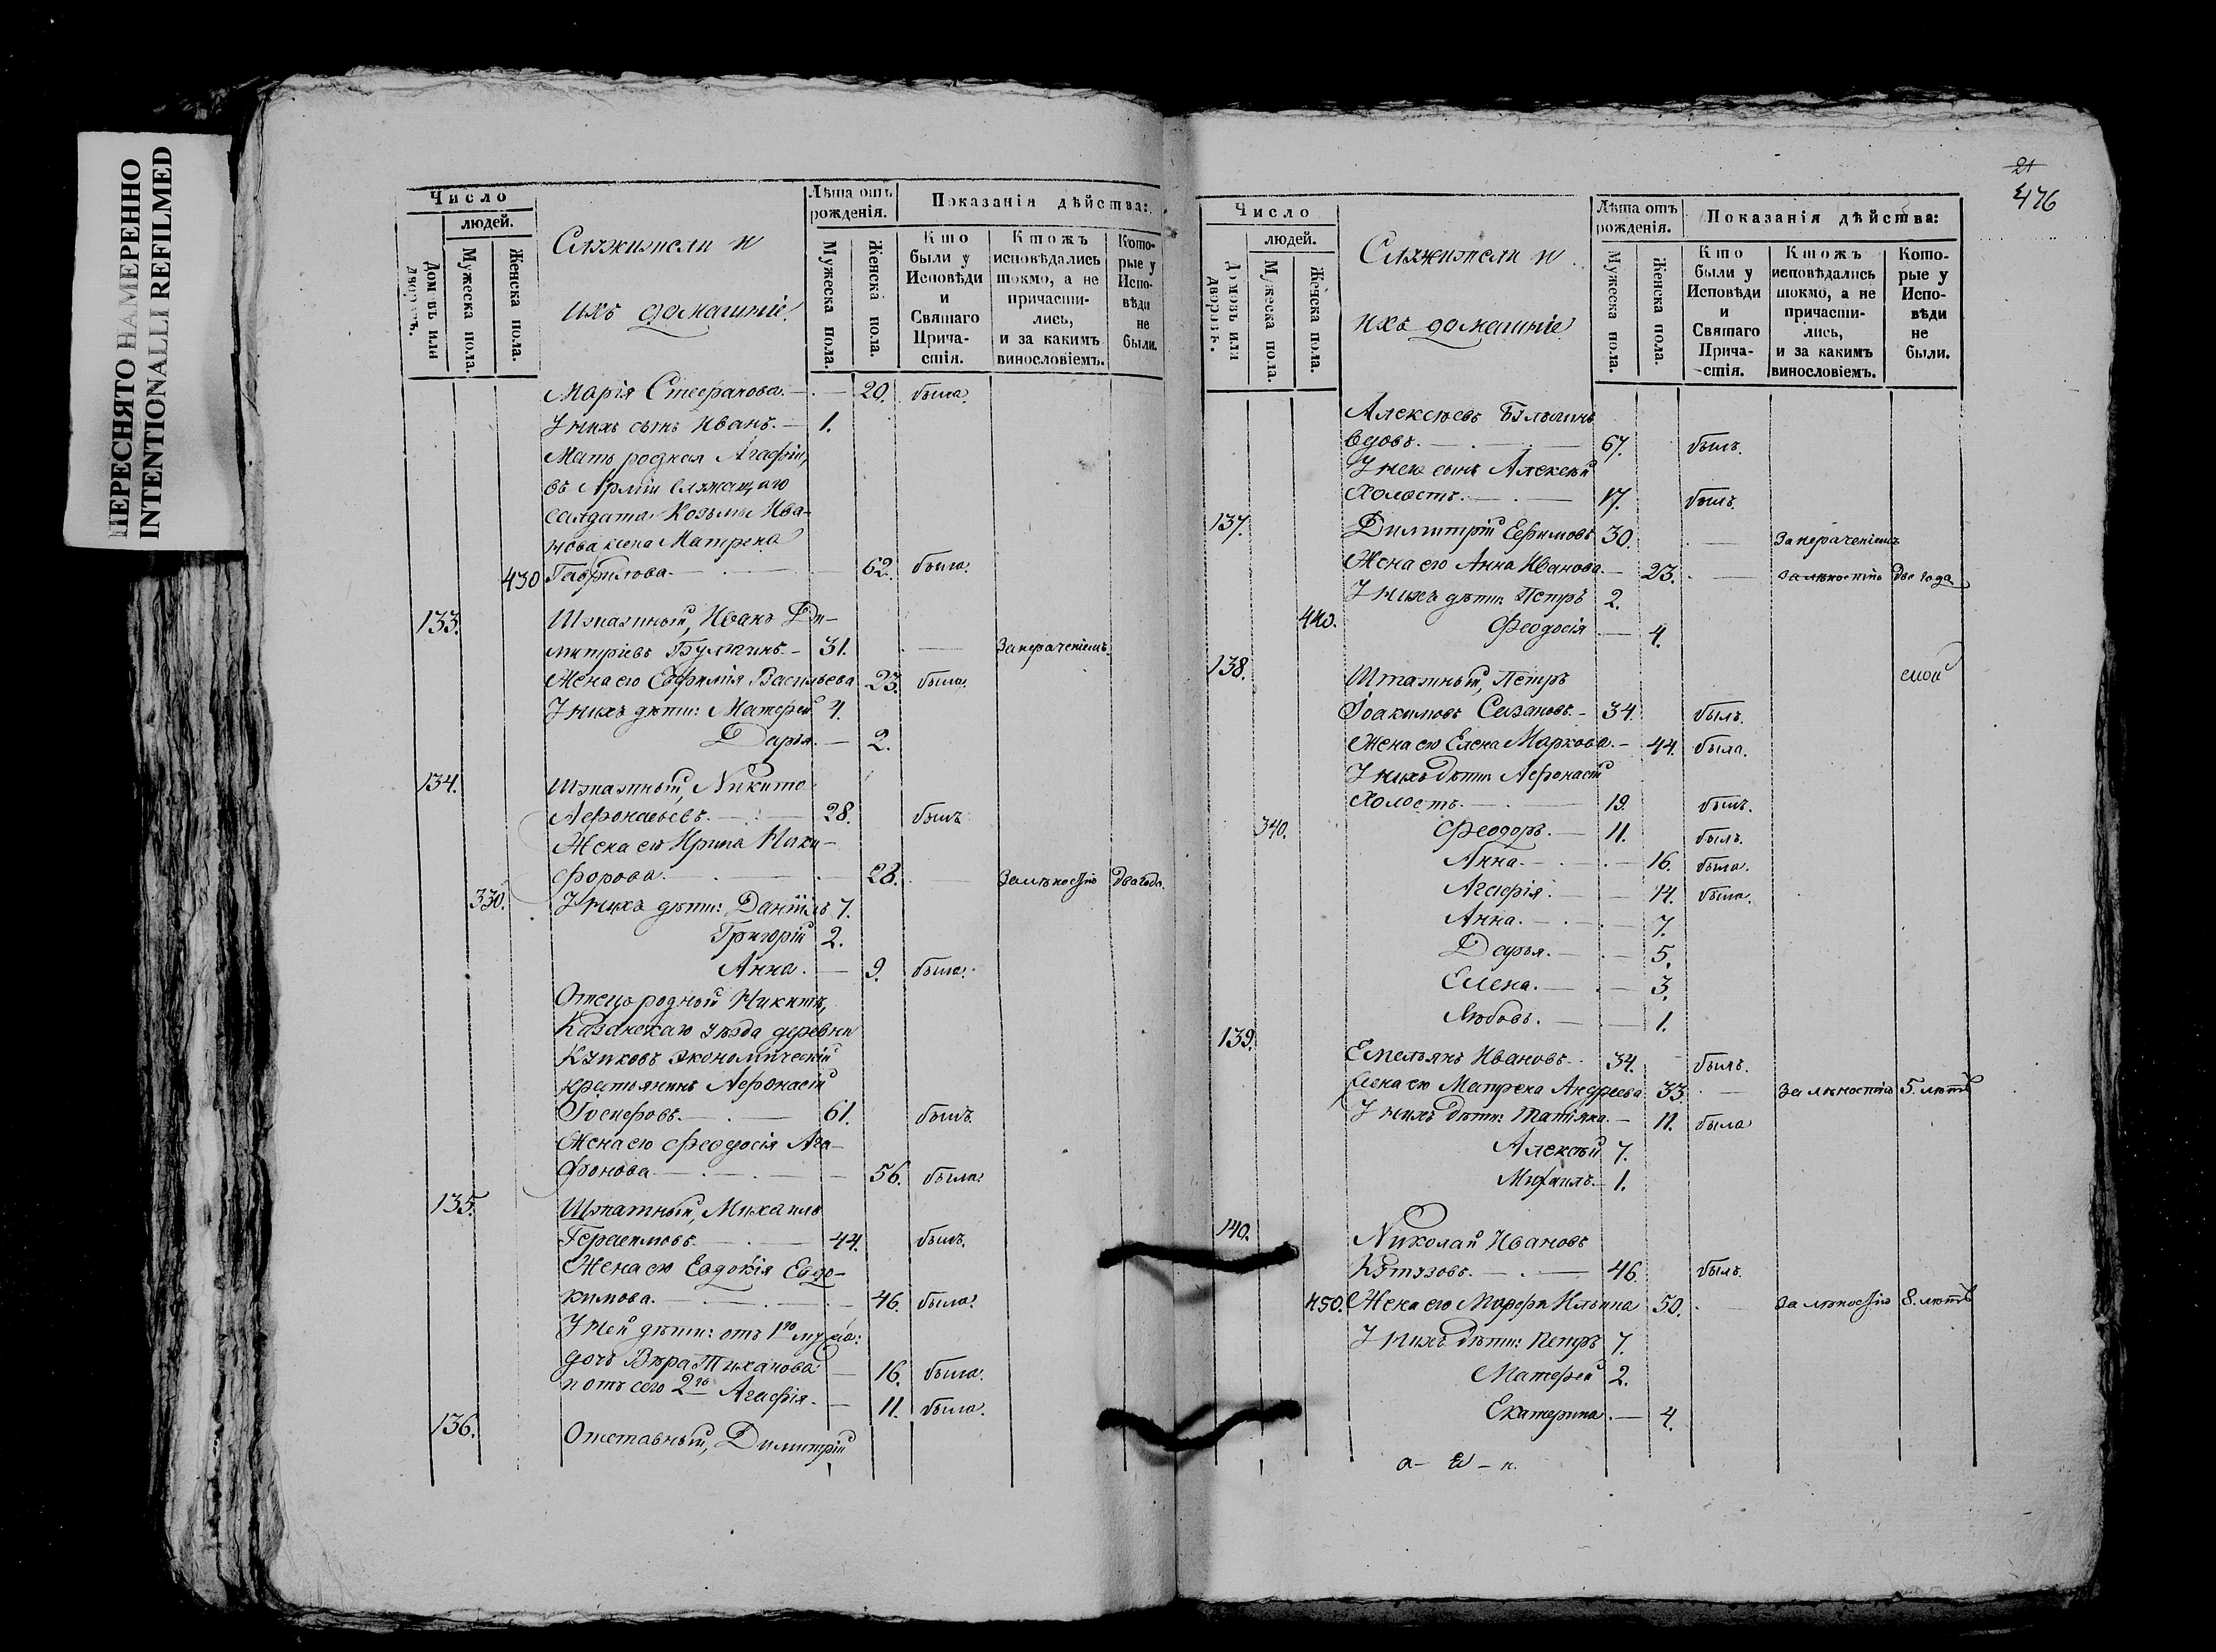 ПЕРЕСНЯТО НАМЕРЕННО
INTENTIONALI REFILMED
Число
людей.
Домовъ или дворовъ.
Мужеска пола.
Женска пола.
Служители и
ихъ домашніе.
Лѣта отъ рожденія.
Мужеска пола.
Женска пола.
Показанія дѣйства:
Кто были у Исповѣди и Святаго Причастія.
Ктожъ исповѣдались токмо, а не причастились, и за какимъ винословіемъ.
Которые у Исповѣди не были.
Марія Стефанова. — 20. была.
У нихъ сынъ Иванъ. — 1.
Мать родная Агафіи,
въ Арміи служащаго
солдата Козьмы Ива-
нова жена Матрена
430 Гаврилова. — 62. была.
133. Штатный, Иванъ Ди-
митріевъ — 31. — За нераченіемъ.
Жена его Евфимія Васильева 23. была.
У нихъ дѣти: Матфей 4.
Дарья. — 2.
134. Штатный, Никита
Афонасьевъ. — 28. былъ
Жена его Ирина Ники-
форова. — 28. — За лѣностію два года.
330. У нихъ дѣти: Даніилъ 7.
Григорій 2.
Анна. — 9. была.
Отецъ родной Никиты,
Казанскаго уѣзда деревни
экономическій
крестьянинъ Афонасій
Іосифовъ. — 61. былъ.
Жена его Феодосія Ага-
фонова — 56. была.
135. Штатный, Михаилъ
Герасимовъ. — 44. былъ.
Жена его Евдокія Евдо-
кимова. — 46. была.
У ней дѣти: отъ 1го мужа:
дочь Вѣра Тиханова — 16. была.
и отъ сего 2го Агафія. — 11. была.
136. Отставный, Димитрій
21
476
Число
людей.
Домовъ или дворовъ.
Мужеска пола.
Женска пола.
Служители и
ихъ домашніе
Лѣта отъ рожденія.
Мужеска пола.
Женска пола.
Показанія дѣйства:
Кто были у Исповѣди и Святаго Причастія.
Ктожъ исповѣдались токмо, а не причастились, и за какимъ винословіемъ.
Которые у Исповѣди не были.
Алексѣевъ
вдовъ. — 67. былъ.
У него сынъ Алексѣй
холостъ. — 17. былъ.
137. Димитрій Ефимовъ 30. — За нераченіемъ
Жена его Анна Иванова. — 23. — за лѣностію два года
У нихъ дѣти: Петръ 2.
440. Феодосія — 4.
138. Штатный, Петръ
Іоакимовъ Сазановъ. — 34. былъ.
Жена его Елена Маркова. — 44. была.
У нихъ дѣти Афонасій
холостъ. — 19. былъ.
340. Феодоръ. — 11. былъ.
Анна. — 16. была.
Агафія. — 14. была.
Анна. — 7.
Дарья. — 5.
Елена. — 3.
Любовь. — 1.
139. Емельянъ Ивановъ. 34. былъ.
Жена его Матрена Андреева 33. — за лѣностію 5. лѣтъ
У нихъ дѣти: Татіяна. — 11. была
Алексѣй 7.
Михаилъ. 1.
140. Николай Ивановъ
Кутузовъ. — 46. былъ.
450. Жена его Марфа Ильина 50. — за лѣностію 8. лѣтъ
У нихъ дѣти: Петръ 7.
Матфей 2.
Екатерина. — 4.